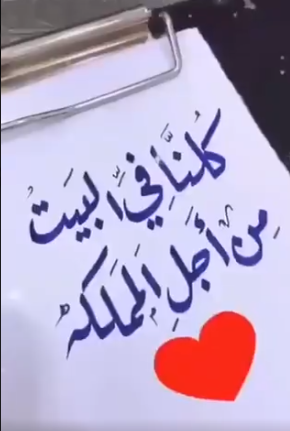 كُلنَّا في البيَتُ
مِن أجَلِ المملكه